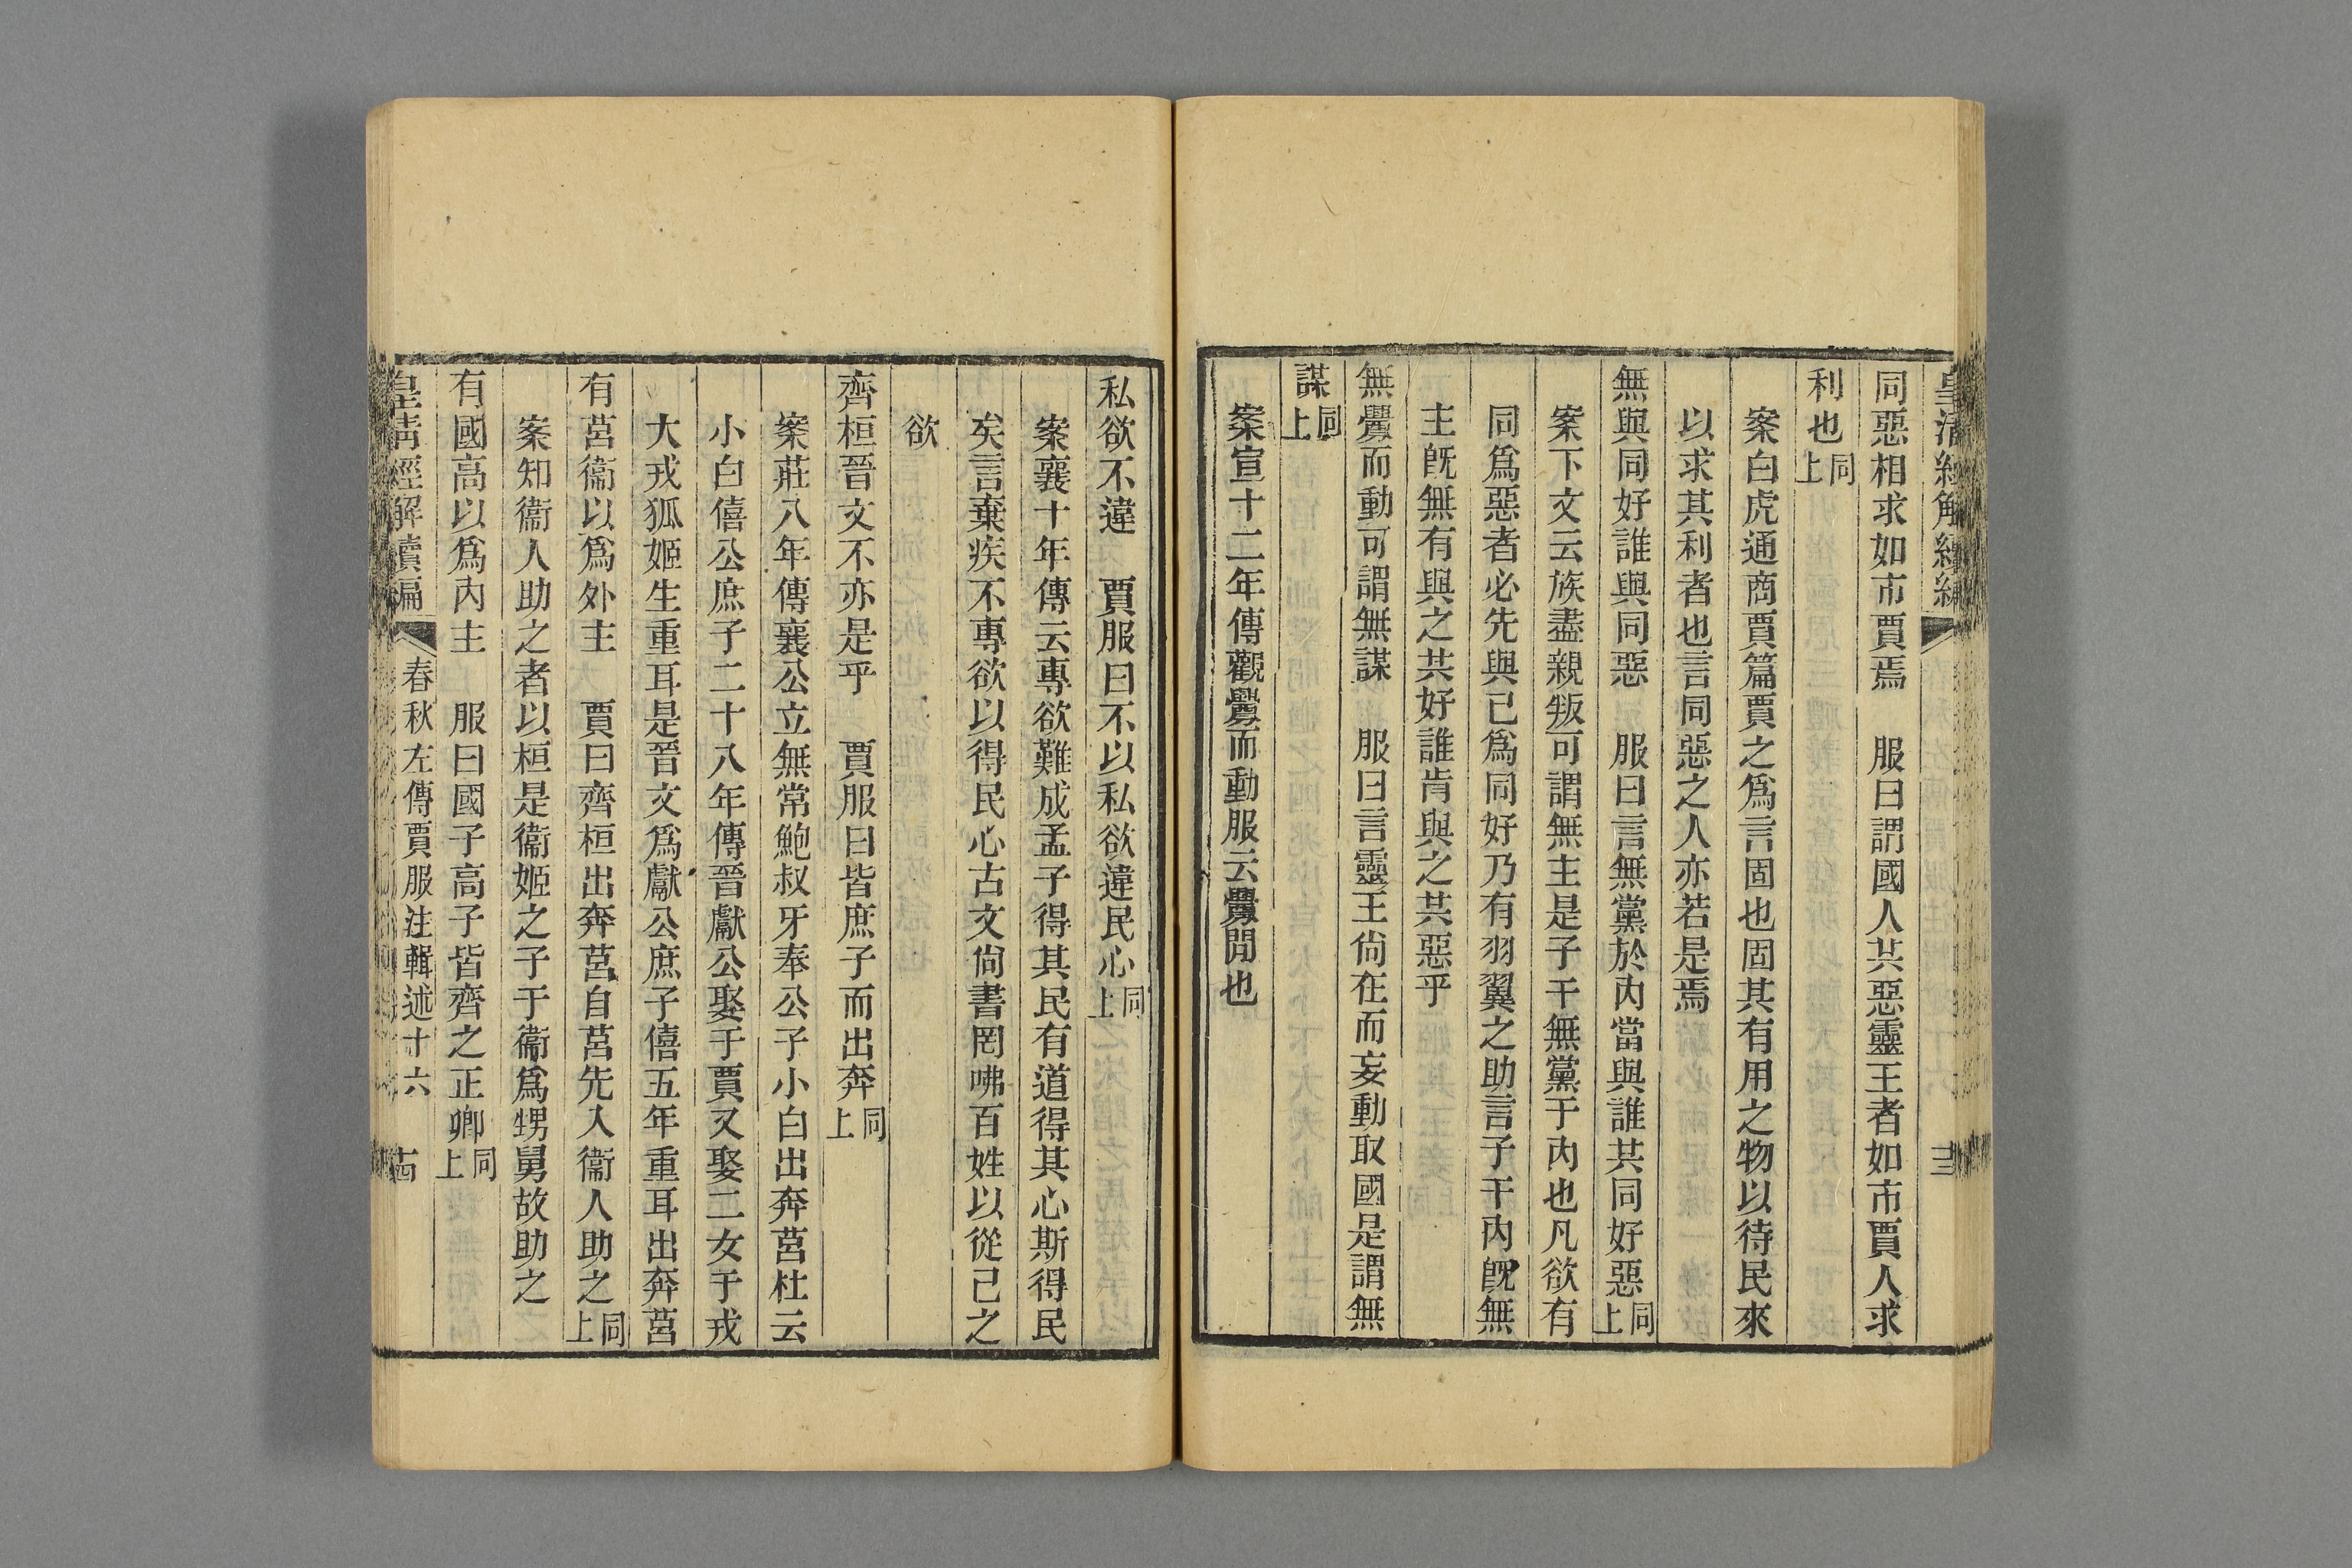 皇清經解續編 三
同惡相求如市賈焉 服曰謂國人共惡靈王者如市賈人求
利也同上
案白虎通商賈篇賈之爲言固也固其有用之物以待民來
以求其利者也言同惡之人亦若是焉
無與同好誰與同惡 服曰言無黨於內當與誰共同好惡同上
案下文云族盡親叛可謂無主是子干無黨于內也凡欲有
同爲惡者必先與已爲同好乃有羽翼之助言子干內旣無
主旣無有與之共好誰肯與之共惡乎
無釁而動可謂無謀 服曰言靈王尙在而妄動取國是謂無
謀同上
案宣十二年傳觀釁而動服云釁閒也
私欲不違 賈服曰不以私欲違民心同上
案襄十年傳云專欲難成孟子得其民有道得其心斯得民
矣言棄疾不專欲以得民心古文尙書罔咈百姓以從己之
欲
齊桓晉文不亦是乎 賈服曰皆庶子而出奔同上
案莊八年傳襄公立無常鮑叔牙奉公子小白出奔莒杜云
小白僖公庶子二十八年傳晉獻公娶于賈又娶二女于戎
大戎狐姬生重耳是晉文爲獻公庶子僖五年重耳出奔莒
有莒衞以爲外主 賈曰齊桓出奔莒自莒先入衞人助之同上
案知衞人助之者以桓是衞姬之子于衞爲甥舅故助之
有國高以爲內主 服曰國子高子皆齊之正卿同上
皇清經解續編 春秋左傳賈服注輯述十六 十四